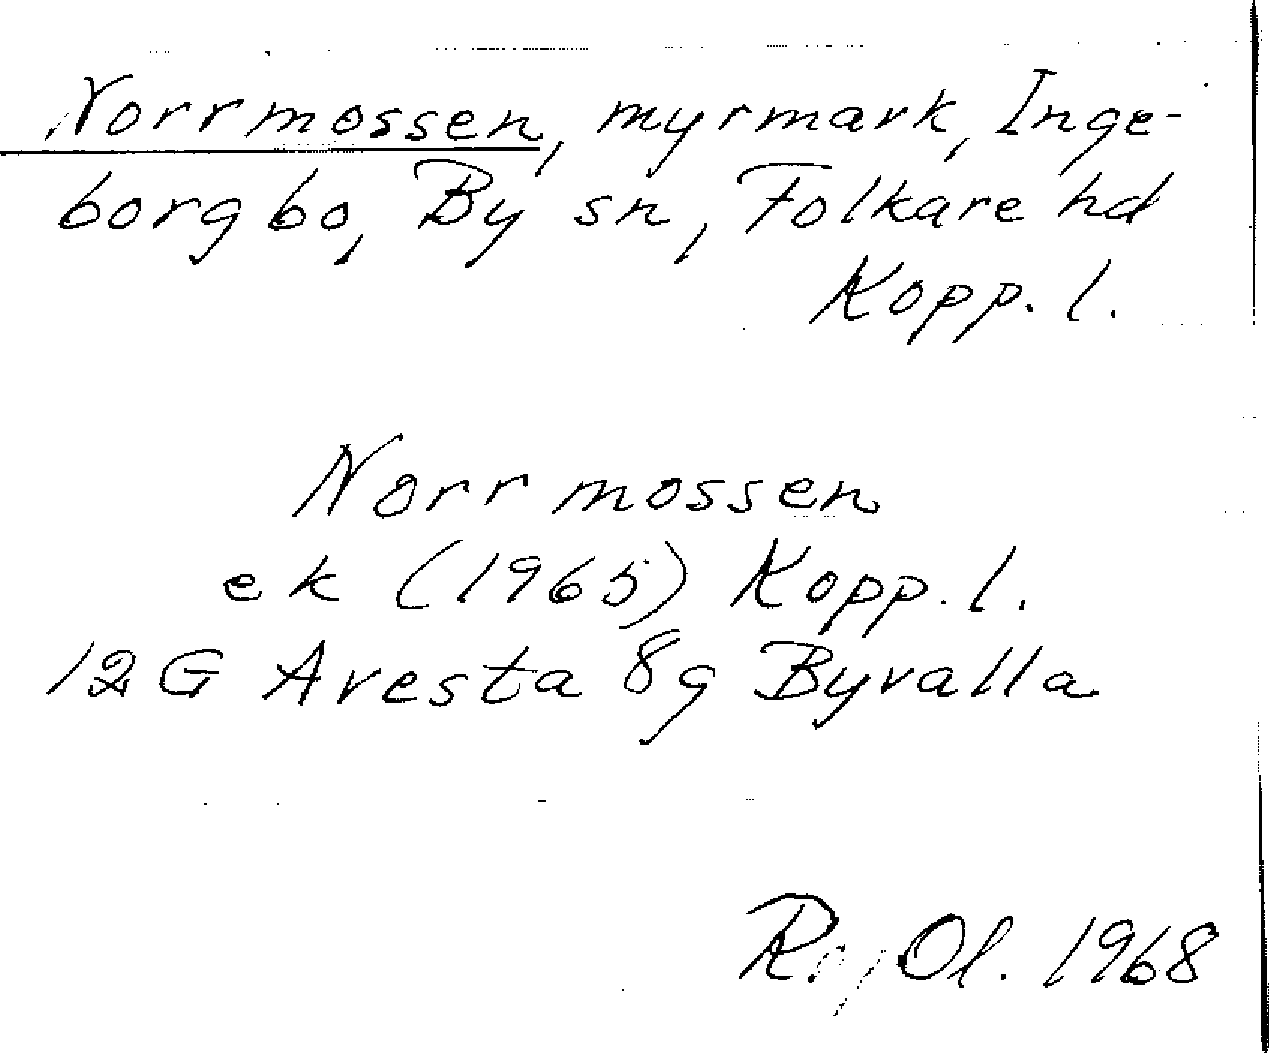 Norrmossen, myrmark, Inge-
borgbo, By sn, Folkare hd
Kopp. l.
Norrmossen
ek (1965) Kopp. l.
12G Avesta 8g Byvalla
Ol. 1968